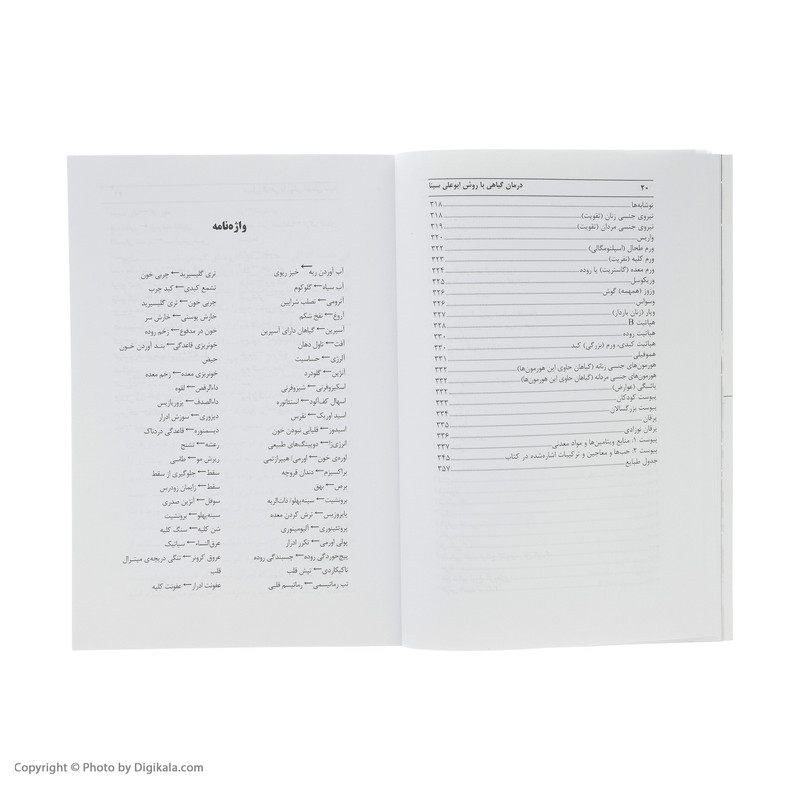 ۲۰ درمان گیاهی با روش ابوعلی سینا
نوشابه‌ها ۳۱۸
نیروی جنسی زنان (تقویت) ۳۱۸
نیروی جنسی مردان (تقویت) ۳۱۹
واریس ۳۲۰
ورم طحال (اسپلنومگالی) ۳۲۲
ورم کلیه (نفریت) ۳۲۳
ورم معده (گاستریت) یا روده ۳۲۴
وریکوسل ۳۲۵
وزوز (همهمه) گوش ۳۲۶
وسواس ۳۲۶
ویار (زنان باردار) ۳۲۷
هپاتیت B ۳۲۸
هپاتیت روده ۳۳۰
هپاتیت کبدی، ورم (بزرگی) کبد ۳۳۰
هموفیلی ۳۳۱
هورمون‌های جنسی زنانه (گیاهان حاوی این هورمون‌ها) ۳۳۲
هورمون‌های جنسی مردانه (گیاهان حاوی این هورمون‌ها) ۳۳۲
یائسگی (عوارض) ۳۳۲
یبوست کودکان ۳۳۳
یبوست بزرگسالان ۳۳۴
یرقان ۳۳۵
یرقان نوزادی ۳۳۶
پیوست ۱: منابع ویتامین‌ها و مواد معدنی ۳۳۷
پیوست ۲: حب‌ها و معاجین و ترکیبات اشاره‌شده در کتاب ۳۴۵
جدول طبایع ۳۵۷
واژه‌نامه
آب آوردن ریه ← خیز ریوی
آب سیاه ← گلوکوم
آترومی ← تصلب شرایین
آروغ ← نفخ شکم
آسپرین ← گیاهان دارای آسپرین
آفت ← تاول دهان
آلرژی ← حساسیت
آنژین ← گلودرد
اسکیزوفرنی ← شیزوفرنی
اسهال کف‌آلود ← استئاتوره
اسید اوریک ← نقرس
اسیدوز ← قلیایی نبودن خون
انرژی‌زا ← دوپینگ‌های طبیعی
اوره‌ی خون ← اورمی/ هیپرازتمی
براکسیزم ← دندان قروچه
برص ← بهق
برونشیت ← سینه‌پهلو/ ذات‌الریه
پایروزیس ← ترش کردن معده
پروتئینوری ← آلبومینوری
پولی اورمی ← تکرر ادرار
پیچ‌خوردگی روده ← چسبندگی روده
تاکیکاردی ← تپش قلب
تب رماتیسمی ← رماتیسم قلبی
تری گلیسیرید ← چربی خون
تشمع کبدی ← کبد چرب
چربی خون ← تری گلیسیرید
خارش پوستی ← خارش سر
خون در مدفوع ← زخم روده
خونریزی قاعدگی ← بند آوردن خون
حیض
خونریزی معده ← زخم معده
داءالرقص ← لقوه
داءالصدف ← پزوریازیس
دیزوری ← سوزش ادرار
دیسمنوره ← قاعدگی دردناک
رعشه ← تشنج
ریزش مو ← طاسی
سقط ← جلوگیری از سقط
سقط ← زایمان زودرس
سوفل ← آنژین صدری
سینه‌پهلو ← برونشیت
شن کلیه ← سنگ کلیه
عرق‌النساء ← سیاتیک
عروق کرونر ← تنگی دریچه‌ی میترال
قلب
عفونت ادرار ← عفونت کلیه
Copyright © Photo by Digikala.com